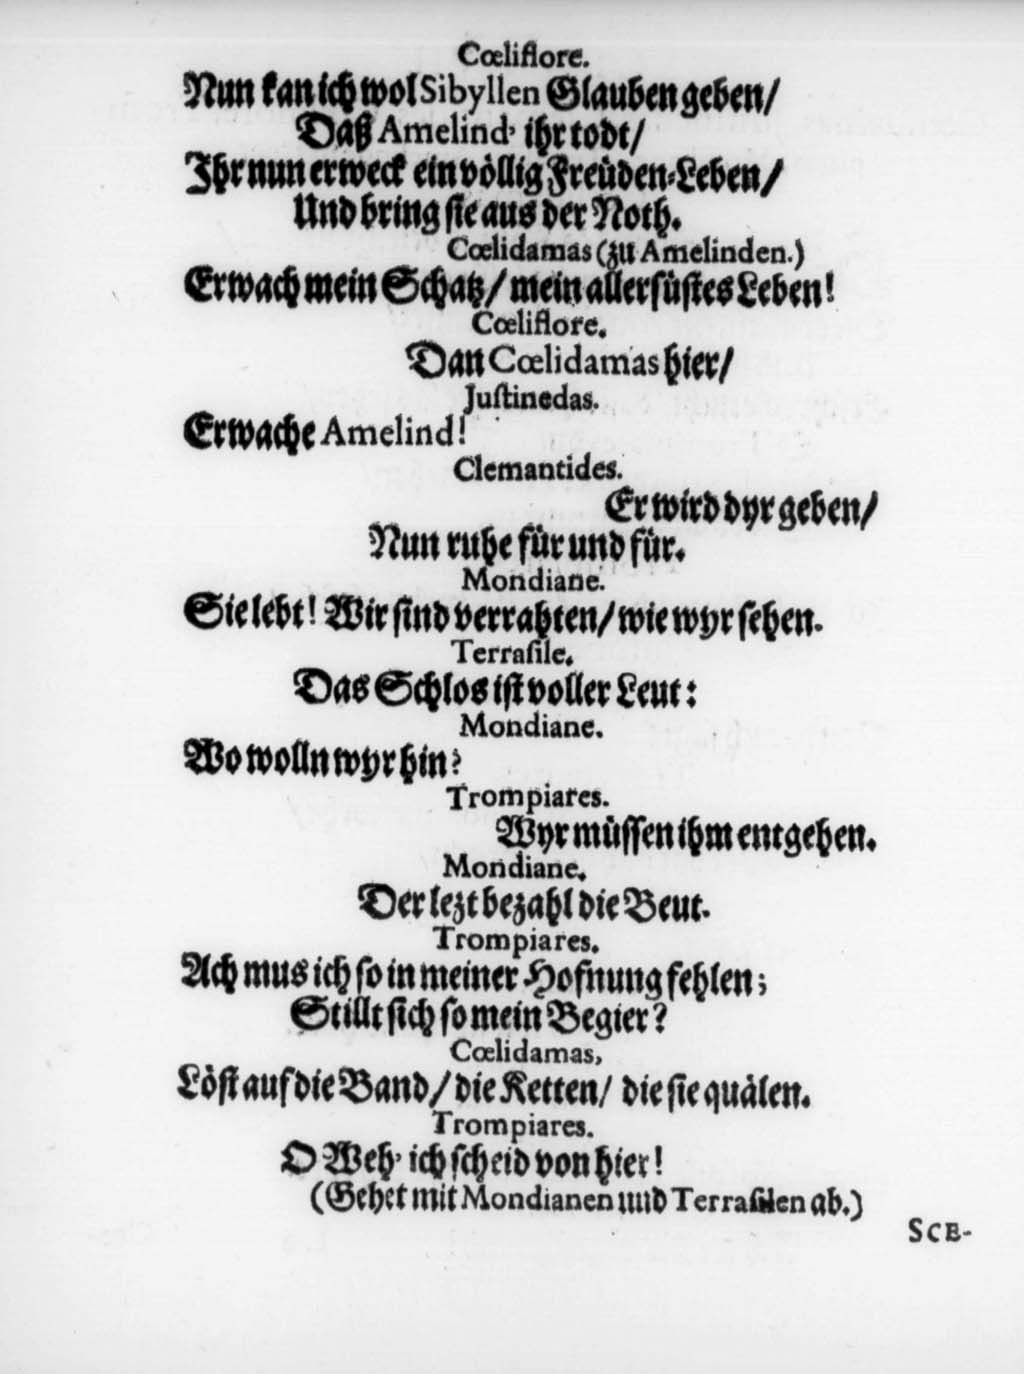 Cœliflore.
Nun kan ich wol Sibyllen Glauben geben/
Daß Amelind' ihr todt/
Ihr nun erweck ein völlig Freüden-Leben/
Und bring sie aus der Noth.
Cœlidamas (zu Amelinden.)
Erwach mein Schatz/ mein allersüstes Leben!
Cœliflore.
Dan Cœlidamas hier/
Juſtinedas.
Erwache Amelind!
Clemantides.
Er wird dyr geben/
Nun ruhe für und für.
Mondiane.
Sie lebt! Wir sind verrahten/ wie wyr sehen.
Terraſile.
Das Schlos ist voller Leut:
Mondiane.
Wo wolln wyr hin?
Trompiares.
Wyr müssen ihm entgehen.
Mondiane.
Der lezt bezahl die Beut.
Trompiares.
Ach mus ich so in meiner Hofnung fehlen;
Stillt sich so mein Begier?
Cœlidamas,
Löst auf die Band/ die Ketten/ die sie quälen.
Trompiares.
O Weh' ich scheid von hier!
(Gehet mit Mondianen und Terraſilen ab.)
SCE-